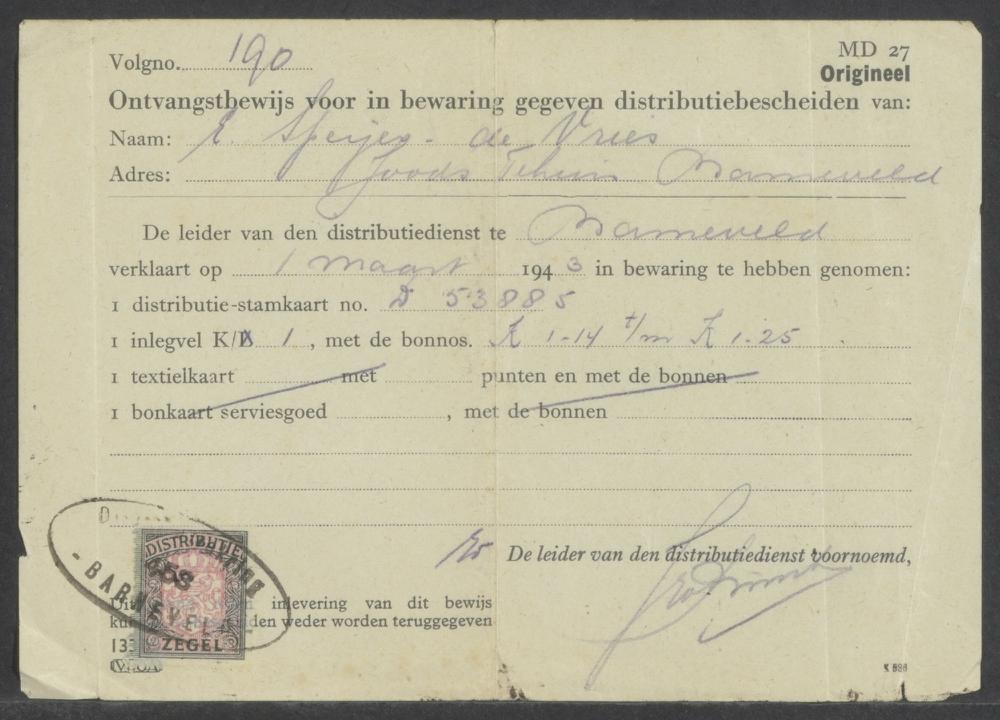 Volgno. 190
MD 27
Origineel
Ontvangstbewijs voor in bewaring gegeven distributiebescheiden van:
Naam: E. Speijer - de Vries
Adres: Joods Tehuis Barneveld
De leider van den distributiedienst te Barneveld
verklaart op 1 maart 1943 in bewaring te hebben genomen:
1 distributie-stamkaart no. D 53885
1 inlegvel K/D 1, met de bonnos. K 1-14 t/m K 1-25
1 textielkaart met punten en met de bonnen
1 bonkaart serviesgoed , met de bonnen
De leider van den distributiedienst voornoemd,
DISTRIBUTIE
BARNEVELD
inlevering van dit bewijs
weder worden teruggegeven
ZEGEL
K 586